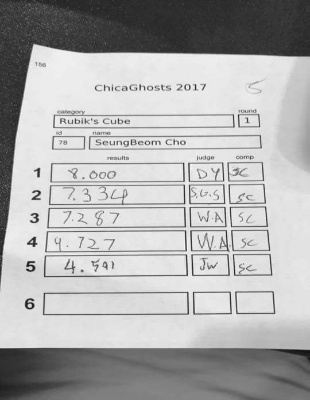 156
ChicaGhosts 2017
5
category round
Rubik's Cube 1
id name
78 SeungBeom Cho
results judge comp
1 8.000 DY SC
2 7.334 S.G.S SC
3 7.287 W.A SC
4 4.727 W.A. SC
5 4.591 JW SC
6